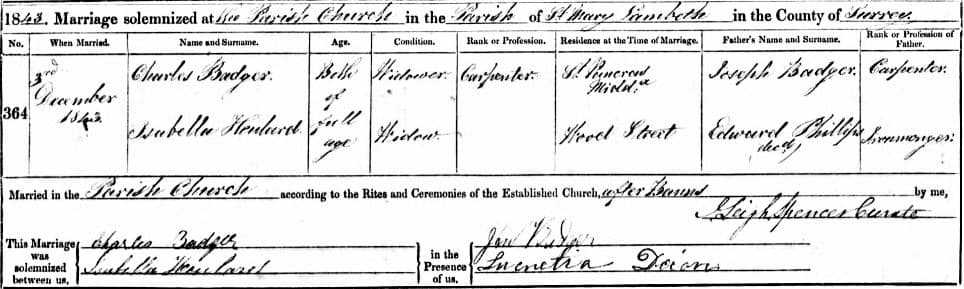 1843. Marriage solemnized at the Parish Church in the Parish of St Mary Lambeth in the County of Surrey
No. When Married. Name and Surname. Age. Condition. Rank or Profession. Residence at the Time of Marriage. Father's Name and Surname. Rank or Profession of Father.
364 3rd December 1843. Charles Badger. Both of full age Widower. Carpenter. St Pancras Middx Joseph Badger. Carpenter.
Isabella Widow. Wood Street Edward Phillips decd Ironmonger.
Married in the Parish Church according to the Rites and Ceremonies of the Established Church, after Banns by me,
Leigh Spencer Curate
This Marriage was solemnized between us, Charles Badger
Isabella
in the Presence of us. Badger
Dixon